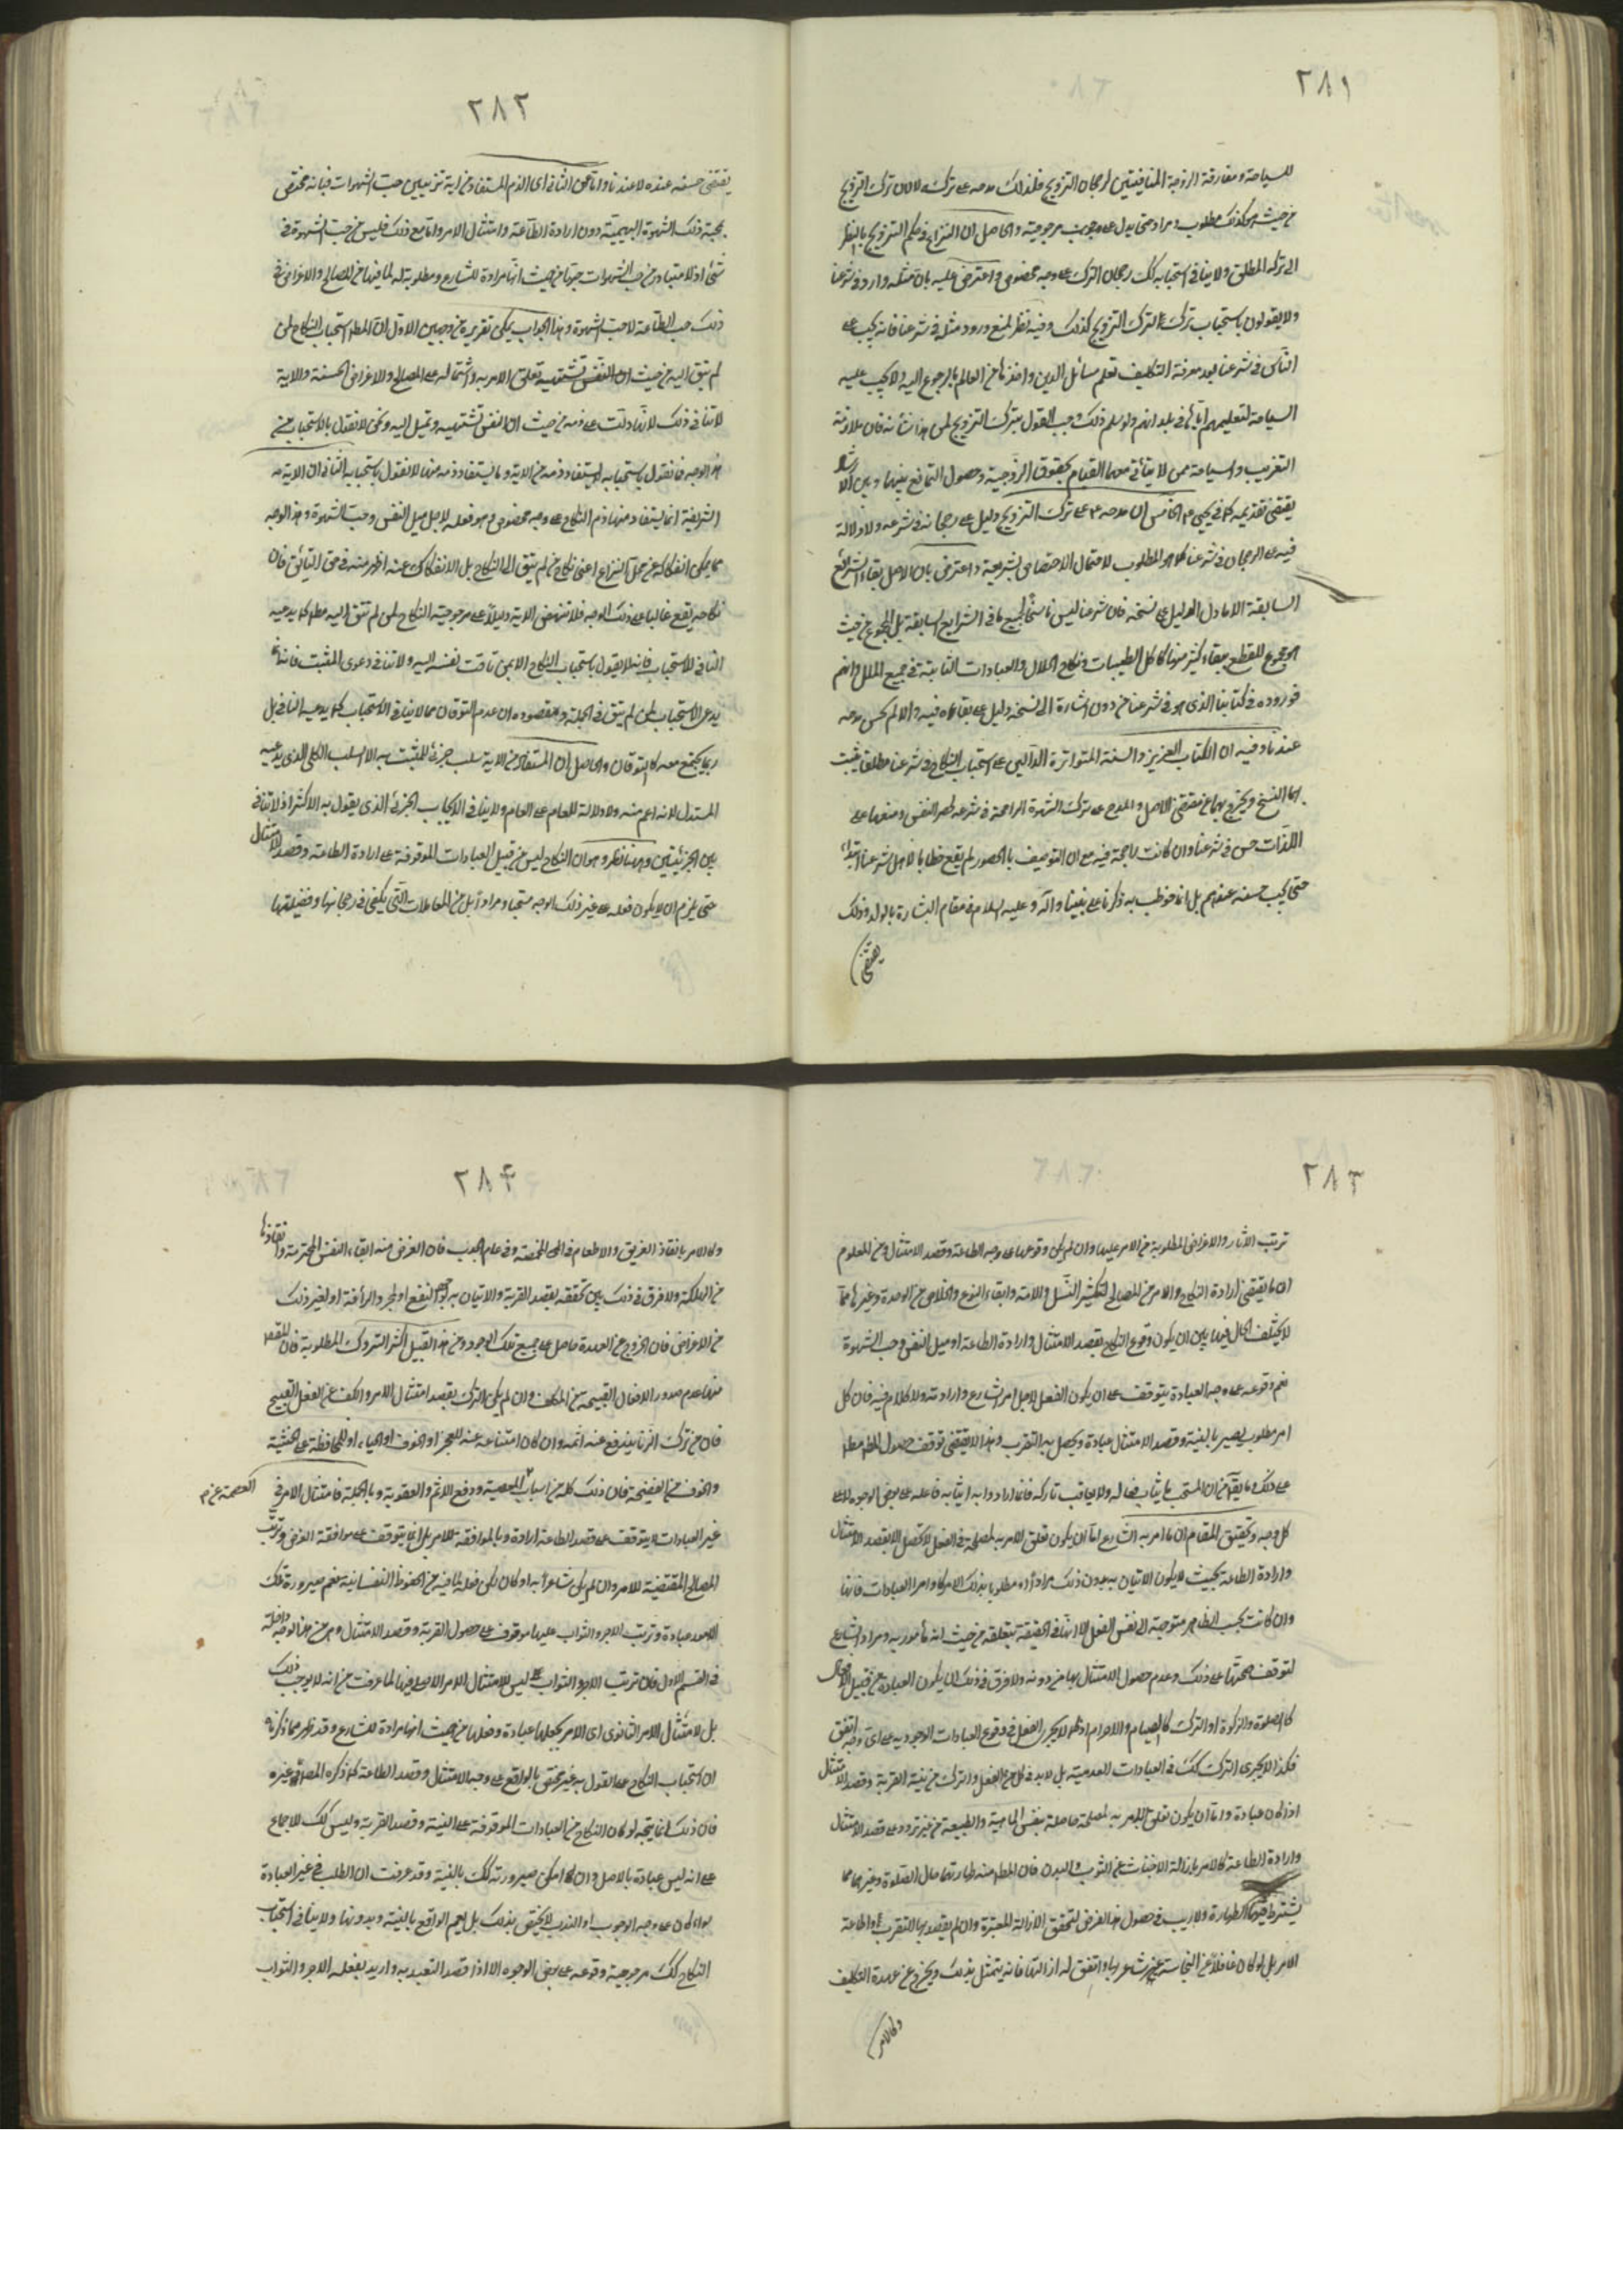 ٢٨١
للسياحة ومفارقة الزوجة المنافيتين لرجحان التزويج فلذلك مدحه على تركه لا لان ترك التزويج
من حيث هو كذلك مطلوب ومراد حتى يدل على وجوب مرجوحيته والحاصل ان النزاع في حكم التزويج بالنظر
الى تركه المطلق ولا ينافي استحبابه كك رجحان الترك على وجه مخصوص واعترض عليه بان مثله وارد في شرعنا
ولا يقولون باستحباب ترك التزويج كذلك وفيه نظر لمنع ورود مثله في شرعنا فانه يجب على
الناس في شرعنا بعد معرفة التكليف تعلم مسائل الدين واخذها من العالم بالرجوع اليه ولا يجب عليه
السياحة لتعليمهم اياها في بلدانهم ولو سلم ذلك وجب القول بترك التزويج لمن هذا شأنه فان ملازمة
التغريب والسياحة مما لا يتأتى معها القيام بحقوق الزوجية وحصول التمانع بينها وبين الارشاد
يقتضي تقديمه كما في يحيى ع الخامس ان مدحه ع على ترك التزويج دليل على رجحانه في شرعه ولا دلالة
فيه على الرجحان في شرعنا كما هو المطلوب لاحتمال الاختصاص بشريعته واعترض بان الاصل بقاء الشرائع
السابقة الا ما دل الدليل على نسخه فان شرعنا ليس ناسخا لجميع ما في الشرايع السابقة بل المجموع من حيث
المجموع للقطع ببقاء كثير منها كاكل الطيبات ونكاح الحلال والعبادات الثابتة في جميع الملل وانهم
فوروده في كتابنا الذي هو في شرعنا من دون اشارة الى نسخه دليل على بقائه فيه والا لم يحسن مدحه
عندنا وفيه ان الكتاب العزيز والسنة المتواترة الدالين على استحباب النكاح في شرعنا مطلقا يثبت
بهما النسخ ويخرج بهما عن مقتضى الاصل والمدح على ترك الشهوة الراجحة في شرعه لحصر النفس ومنعها على
اللذات حسن في شرعنا وان كانت راجحة فيه مع ان التوصيف بالحصور لم يقع خطابا لاهل شرعنا ابتداء
حتى يجب حسنه عندهم بل انما خوطب به زكريا على نبينا وآله وعليه السلام في مقام البشارة بالولد وذلك
يقتضي
٢٨٢
يقتضي حسنه عنده لا عندنا واما عن الثاني اي الذم المستفاد من اية تزيين حب الشهوات فبانه مختص
بمحبة ذلك الشهوة البهيمية دون ارادة الطاعة وامتثال الامر واما مع ذلك فليس من حب الشهوة في
شيء اذ المتبادر من حب الشهوات حبها من حيث انها مرادة للشارع ومطلوبة له لما فيها من المصالح والاغراض في
ذلك حب الطاعة لا حب الشهوة وهذا الجواب يمكن تقريره من وجهين الاول ان المطلوب استحباب النكاح لمن
لم يتق اليه من حيث ان النفس تشتهيه تعلق الامر به واشتماله على المصالح والاغراض الحسنة والاية
لا تنافي ذلك لانها دلت على ذمه من حيث ان النفس تشتهيه وتميل اليه ونحن لا نقول بالاستحباب من
هذا الوجه فما نقول باستحبابه لم يستفد ذمه من الاية وما يستفاد ذمه منها لا نقول باستحبابه الثاني ان الاية
الشريفة انما يستفاد منها ذم النكاح على وجه مخصوص وهو فعله لاجل ميل النفس وحب الشهوة وهذا الوجه
مما يمكن انفكاكه عن محل النزاع اعني نكاح من لم يتق الى النكاح بل الانفكاك عنه اظهر منه في حق التائق فان
نكاحه يقع غالبا على ذلك الوجه فلا تنهض الاية دليلا على مرجوحية النكاح لمن لم تتق اليه مطلقا كما يدعيه
النافي للاستحباب فانه لا يقول باستحباب النكاح الا لمن تاقت نفسه اليه ولا تنافي دعوى المثبت فانه انما
يدعي الاستحباب لمن لم يتق في الجملة ومقصوده ان عدم التوقان مما لا ينافي الاستحباب كما يدعيه النافي بل
ربما يجتمع معه كالتوقان والحاصل ان المستفاد من الاية سلب جزئي للمثبت به لا السلب الكلي الذي يدعيه
المستدل لانه اعم منه ولا دلالة للعام على الخاص ولا ينافي الايجاب الجزئي الذي يقول به الاكثر اذ لا تنافي
بين الجزئيتين وههنا نظر وهو ان النكاح ليس من قبيل العبادات الموقوفة على ارادة الطاعة وقصد الامتثال
حتى يلزم ان لا يكون فعله على غير ذلك الوجه مستحبا ومرادا بل من المعاملات التي يكفي في رجحانها وفضيلتها
٢٨٣
ترتب الاثار والاغراض المطلوبة من الامر عليها وان لم يكن وقوعها على وجه الطاعة وقصد الامتثال ومن المعلوم
ان ما يقتضي ارادة النكاح والامر من المصالح لتكثير النسل والامة وابقاء النوع والخلاص من الوحدة وغيرها مما
لا يختلف الحال فيها بين ان يكون وقوع النكاح بقصد الامتثال وارادة الطاعة او ميل النفس وحب الشهوة
نعم وقوعه على وجه العبادة يتوقف على ان يكون الفعل لاجل امر الشارع وارادته ولا كلام فيه فان كل
امر مطلوب يصير بالنية وقصد الامتثال عبادة ويحصل به التقرب وهذا لا يقتضي توقف حصول المطلوب مطلقا
على ذلك وما يقال من ان المستحب ما يثاب فعاله ولا يعاقب تاركه فانما ارادوا به اثابة فاعله على بعض الوجوه لا على
كل وجه وتحقيق المقام ان ما امر به الشارع اما ان يكون تعلق الامر به لمصلحة في الفعل لا تحصل الا بقصد الامتثال
وارادة الطاعة بحيث لا يكون الاتيان به بدون ذلك مرادا ومطلوبا بذلك الامر كاوامر العبادات فانها
وان كانت بحسب الظاهر متوجهة الى نفس الفعل الا انها في الحقيقة متعلقة من حيث انه مأمور به ومراد الشارع
لتوقف صحتها على ذلك وعدم حصول الامتثال بها من دونه ولا فرق في ذلك اما يكون العبادة من قبيل الافعال
كالصلوة والزكوة او الترك كالصيام والاحرام اذ كما لا يجزي الفعل في وقوع العبادات الوجودية على اي وجه اتفق
فكذا لا يجزي الترك كك في العبادات العدمية بل لابد في كل من الفعل والترك من نية القربة وقصد الامتثال
اذا كان عبادة واما ان يكون تعلق الامر به لمصلحة حاصلة بنفس الماهية والطبيعة من غير تردد على قصد الامتثال
وارادة الطاعة كالامر بازالة الاخباث عن الثوب والبدن فان المطلوب منه طهارتهما حال الصلوة وغيرهما مما
يشترط فيه الطهارة ولا ريب في حصول هذا الغرض لتحقق الازالة المعتبرة وان لم يقصد بها التقرب واطاعة
الامر بل لو كان غافلا عن النجاسة غير شاعر بها واتفق له ازالتها فانه يتمثل بذلك ويخرج عن عهدة التكليف
وكالامر
٢٨۴
وكالامر بانقاذ الغريق والاطعام في المخمصة وفي عام الجدب فان الغرض منه ابقاء النفس المحترمة وانقاذها
من الهلكة ولا فرق في ذلك بين تحققه بقصد القربة والاتيان به لتوهم النفع او لمجرد الرأفة او لغير ذلك
من الاغراض فان الخروج عن العهدة حاصل على جميع تلك الوجوه ومن هذا القبيل اكثر التروك المطلوبة فان المقصود
منها عدم صدور الافعال القبيحة عن المكلف وان لم يكن الترك بقصد امتثال الامر والكف عن الفعل القبيح
فان من ترك الزنا يندفع عنه اثمه وان كان امتناعه عنه للعجز او الخوف او الحياء او للمحافظة على الحشمة
والخوف من الفضيحة فان ذلك كله من اسباب العصمة ودفع الاثم والعقوبة وبالجملة فامتثال الامر في
العصمة عن م
غير العبادات لا يتوقف على قصد الطاعة ارادة وبالموافقة للامر بل انما يتوقف على موافقة الغرض وترتب
المصالح المقتضية للامر وان لم يكن شاعرا به او كان لكن فعله لما فيه من الحظوظ النفسانية نعم صيرورة تلك
الامور عبادة وترتب الاجر والثواب عليها موقوف على حصول القربة وقصد الامتثال وهو من هذا الوجه داخلة
في القسم الاول فان ترتب الاجر والثواب ليس لامتثال الامر الاصلي فيها لما عرفت من انه لا يوجب ذلك
بل لامتثال الامر الثانوي اي الامر بجعلها عبادة وفعلها من حيث انها مرادة للشارع وقد ظهر مما ذكرناه
ان استحباب النكاح على القول به غير مختص بالواقع على وجه الامتثال وقصد الطاعة كما ذكره المص وغيره
فان ذلك انما يتجه لو كان النكاح من العبادات الموقوفة على النية وقصد القربة وليس كك للاجماع
على انه ليس عبادة بالاصل وان امكن صيرورته كك بالنية وقد عرفت ان الطلب في غير العبادة
سواء كان على وجه الوجوب او الندب لا يختص بذلك بل يعم الواقع بالنية وبدونها ولا ينافي استحباب
النكاح كك مرجوحية وقوعه على بعض الوجوه الا اذا قصد التعبد به واريد بفعله الاجر والثواب